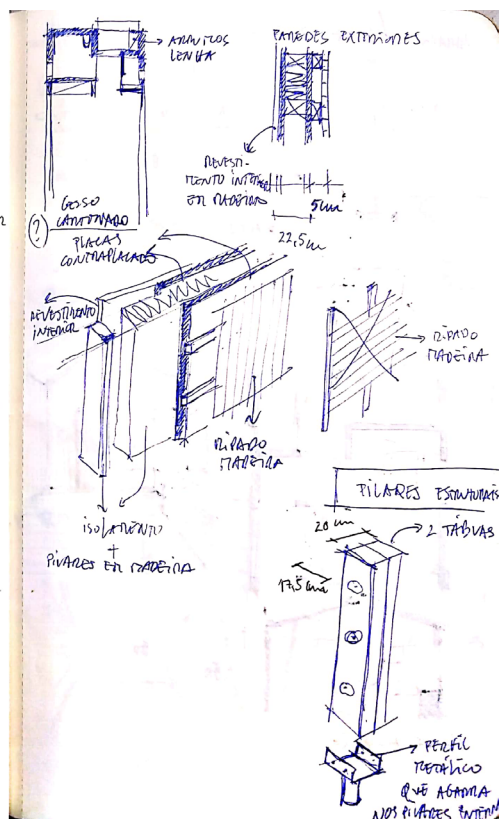 ARRUMOS
LENHA
PAREDES EXTERIORES
REVESTI-
MENTO INTERIOR
EM MADEIRA
5cm
22,5cm
(?) GESSO
CARTONADO
PLACAS
CONTRAPLACADO
REVESTIMENTO
INTERIOR
RIPADO
MADEIRA
RIPADO
MADEIRA
ISOLAMENTO
+
PILARES EM MADEIRA
PILARES ESTRUTURAIS
20cm
2 TÁBUAS
17,5cm
PERFIL
METÁLICO
QUE AGARRA
NOS PILARES